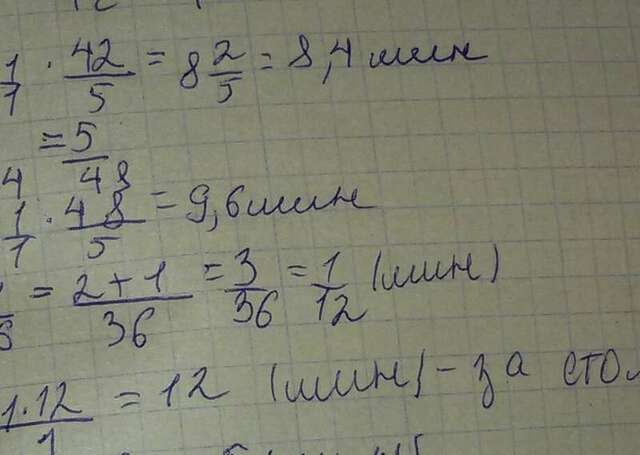 1/1 · 42/5 = 8 2/5 = 8,4 мин
= 5/48
4
1/1 · 48/5 = 9,6 мин
= 2+1/36 = 3/36 = 1/12 (мин)
1·12/1 = 12 (мин) - за